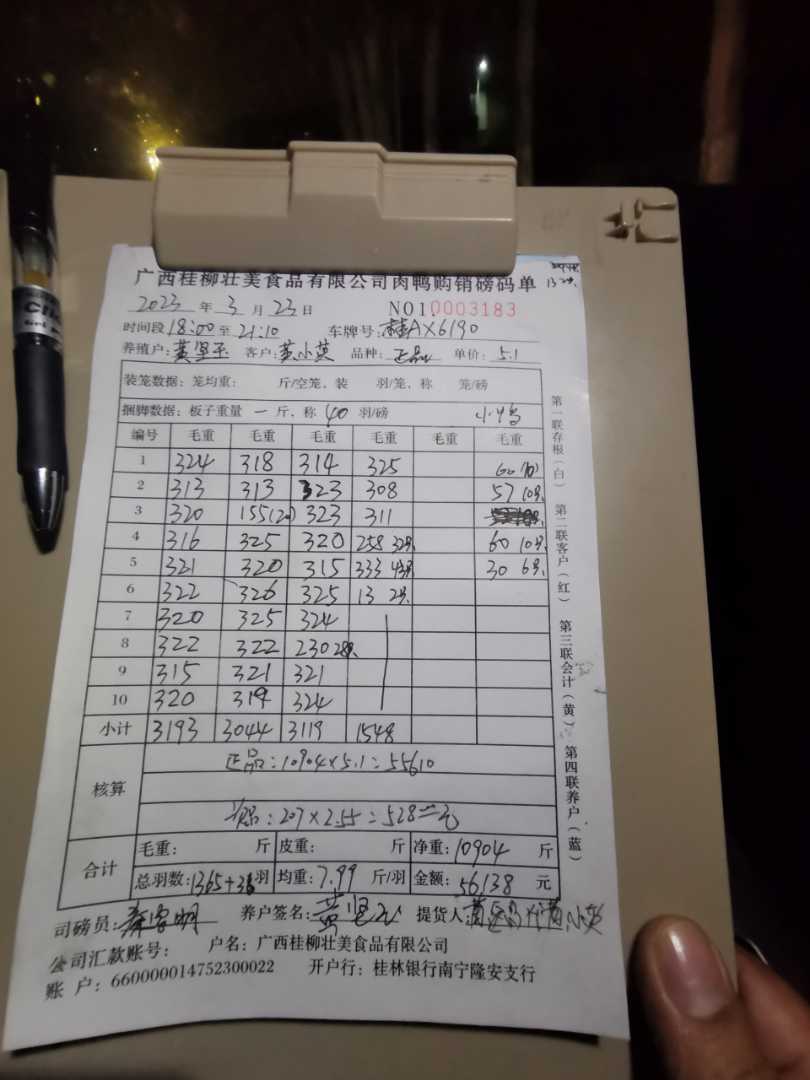 广西桂柳壮美食品有限公司肉鸭购销磅码单
13 2只
2023 年 3 月 23 日 NO10003183
时间段 18:00 至 21:10 车牌号: 桂AX6190
养殖户: 黄坚玉 客户: 黄小英 品种: 正品 单价: 5.1
装笼数据: 笼均重: 斤/空笼、装 羽/笼、称 笼/磅
捆脚数据: 板子重量 一 斤、称 40 羽/磅 小鸭
编号 毛重 毛重 毛重 毛重 毛重 毛重
1 324 318 314 325 60 10
2 313 313 323 308 57 10只
3 320 155(20) 323 311
4 316 325 320 258 32只 60 10只
5 321 320 315 333 43只 30 6只
6 322 326 325 13 2只
7 320 325 324
8 322 322 230 28只
9 315 321 321
10 320 319 324
小计 3193 3044 3119 1548
核算
正品: 10904×5.1=55610
207×2.55=528元
合计
毛重: 斤 皮重: 斤 净重: 10904 斤
总羽数: 1365+36 羽 均重: 7.99 斤/羽 金额: 56138 元
司磅员: 养户签名: 黄坚玉 提货人:
公司汇款账号: 户名: 广西桂柳壮美食品有限公司
账 户: 660000014752300022 开户行: 桂林银行南宁隆安支行
第一联存根(白) 第二联客户(红) 第三联会计(黄) 第四联养户(蓝)